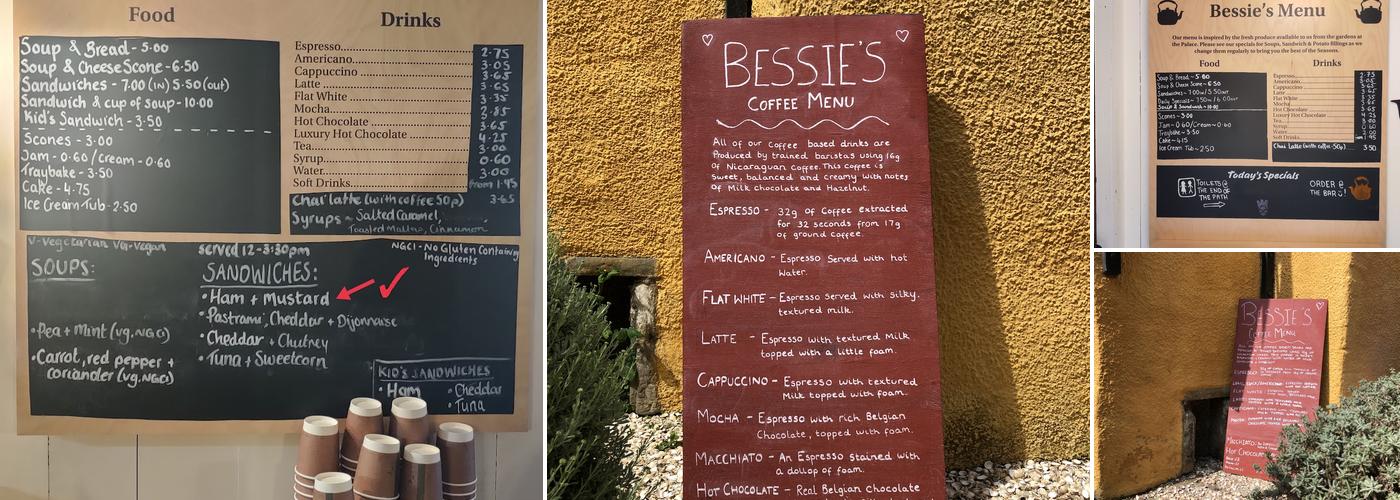 Food
Soup & Bread - 5.00
Soup & Cheese Scone - 6.50
Sandwiches - 7.00 (IN) 5.50 (out)
Sandwich & cup of soup - 10.00
Kid's Sandwich - 3.50
Scones - 3.00
Jam - 0.60 / Cream - 0.60
Traybake - 3.50
Cake - 4.75
Ice Cream Tub - 2.50
Drinks
Espresso 2.75
Americano 3.05
Cappuccino 3.65
Latte 3.65
Flat White 3.35
Mocha 3.85
Hot Chocolate 3.65
Luxury Hot Chocolate 4.25
Tea 3.00
Syrup 0.60
Water 3.00
Soft Drinks From 1.95
Chai latte (with coffee 50p) 3.65
Syrups ~ Salted Caramel,
Toasted Mallow, Cinnamon
V-Vegetarian Vg-Vegan
served 12-3:30pm
NGCI - No Gluten Containing
Ingredients
SOUPS:
• Pea + Mint (vg. NGCI)
• Carrot, red pepper +
coriander (vg. NGCI)
SANDWICHES:
• Ham + Mustard
• Pastrami, Cheddar + Dijonnaise
• Cheddar + Chutney
• Tuna + Sweetcorn
KID'S SANDWICHES
• Ham
• Cheddar
• Tuna
BESSIE'S
COFFEE MENU
All of our coffee based drinks are
Produced by trained baristas using 16g
of Nicaraguan coffee. This coffee is
Sweet, balanced and creamy with notes
of Milk chocolate and Hazelnut.
ESPRESSO - 32g of Coffee extracted
for 32 seconds from 17g
of ground coffee.
AMERICANO - Espresso Served with hot
Water.
FLAT WHITE - Espresso served with silky.
textured milk.
LATTE - Espresso with textured Milk
topped with a little foam.
CAPPUCCINO - Espresso with textured
Milk topped with foam.
MOCHA - Espresso with rich Belgian
Chocolate, topped with foam.
MACCHIATO - An Espresso stained with
a dollop of foam.
HOT CHOCOLATE - Real Belgian Chocolate
Bessie's Menu
Our menu is inspired by the fresh produce available to us from the gardens at
the Palace. Please see our specials for Soups, Sandwich & Potato fillings as we
change them regularly to bring you the best of the Seasons.
Food
Soup & Bread - 5.00
Soup & Cheese Scone - 6.50
Scones - 3.00
Jam - 0.60 / Cream - 0.60
Traybake - 3.50
Cake - 4.50
Ice Cream Tub - 2.50
Drinks
Espresso 2.75
Americano
Cappuccino
Latte
Flat White
Mocha
Hot Chocolate
Luxury Hot Chocolate
Tea
Syrup
Water
Soft Drinks
Chai Latte (with coffee - 50p) 3.50
Today's Specials
TOILETS @
THE END OF
THE PATH
ORDER @
THE BAR
BESSIE'S
COFFEE MENU
MACCHIATO
HOT CHOCOLATE